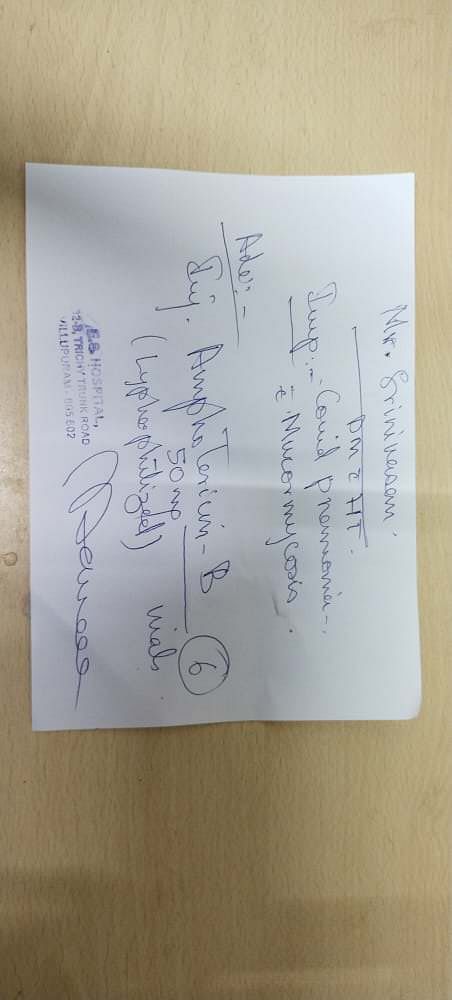 Mr. Srinivasan.
DM c̄ HT.
Imp:- Covid pneumonia-.
c̄ Mucormycosis.
Adv:-
Inj. Ampho Tericin-B
50 mg
(Lyphophilized)
6
vials
E.S. HOSPITAL,
12-B, TRICHY TRUNK ROAD
VILLUPURAM - 605 602